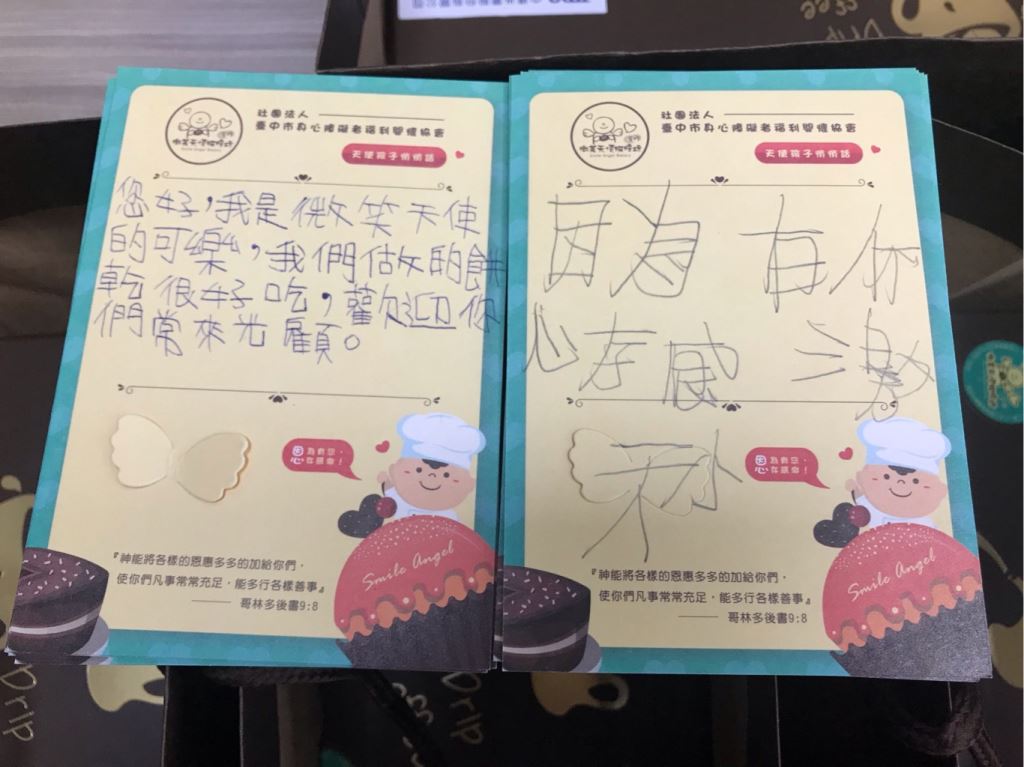 社團法人
臺中市身心障礙者福利關懷協會
微笑天使烘焙坊
Smile Angel Bakery
天使孩子悄悄話
您好,我是微笑天使
的可樂,我們做的餅
乾很好吃,歡迎你
們常來光顧。
恩為有您,
心存感恩!
『神能將各樣的恩惠多多的加給你們,
使你們凡事常常充足,能多行各樣善事』
哥林多後書9:8
Smile Angel
社團法人
臺中市身心障礙者福利關懷協會
微笑天使烘焙坊
Smile Angel Bakery
天使孩子悄悄話
因為有你
心存感激
恩為有您,
心存感恩!
『神能將各樣的恩惠多多的加給你們,
使你們凡事常常充足,能多行各樣善事』
哥林多後書9:8
Smile Angel
Drip